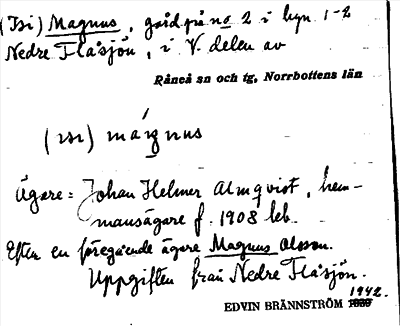 (Isi) Magnus, gård på no 2 i byn 1-2
Nedre Flåsjön, i V. delen av
Råneå sn och tg, Norrbottens län
(ısı) mágnus
Ägare: Johan Helmer Almqvist, hem-
mansägare f. 1908 leb.
Efter en föregående ägare Magnus Olsson.
Uppgiften från Nedre Flåsjön.
1942.
EDVIN BRÄNNSTRÖM 1939